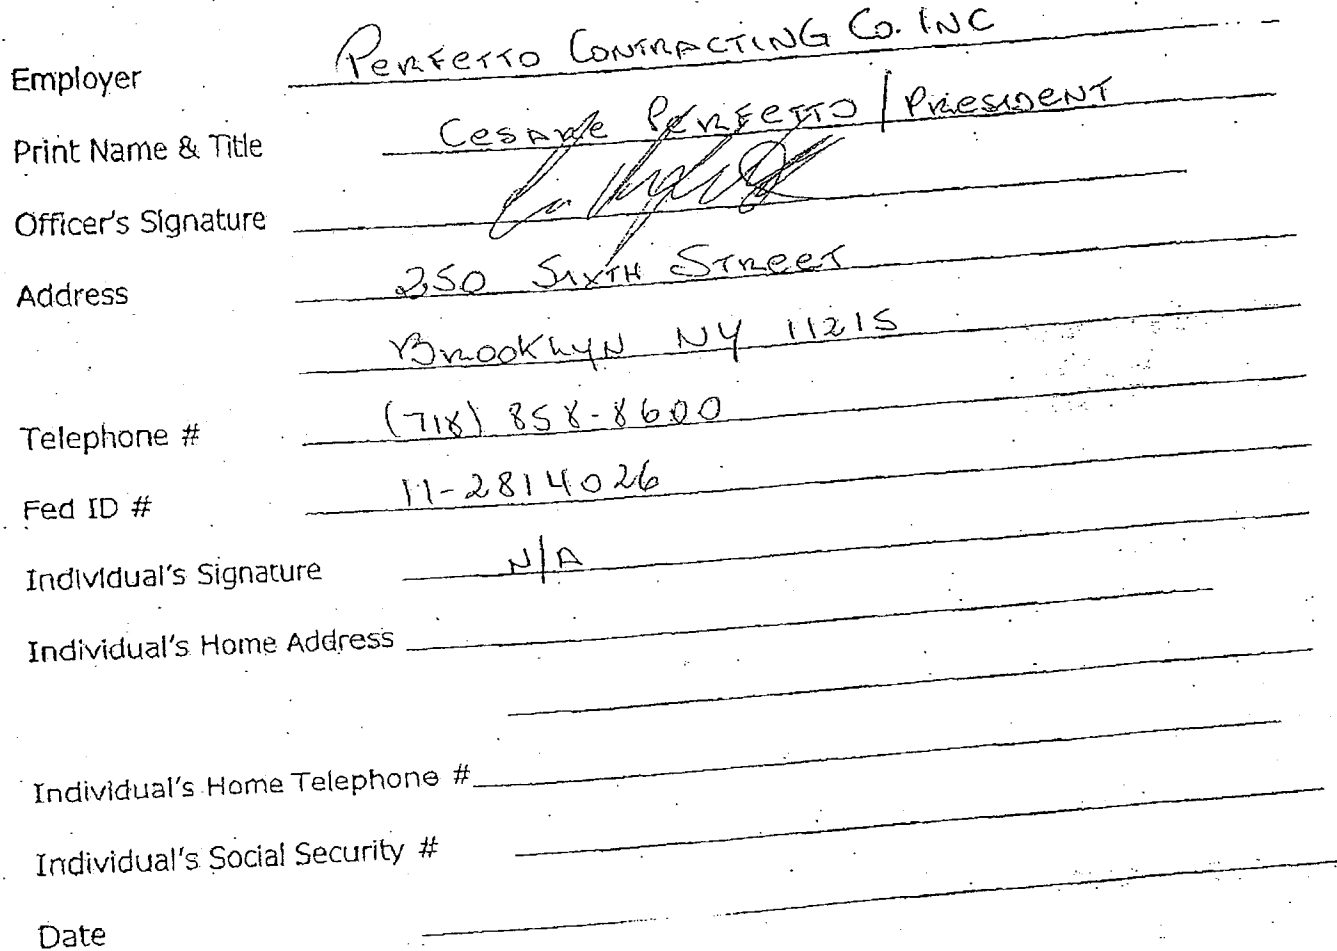 Employer PERFETTO CONTRACTING CO. INC
Print Name & Title CESARE PERFETTO / PRESIDENT
Officer's Signature
Address 250 SIXTH STREET
BROOKLYN NY 11215
Telephone # (718) 858-8600
Fed ID # 11-2814026
Individual's Signature N/A
Individual's Home Address
Individual's Home Telephone #
Individual's Social Security #
Date